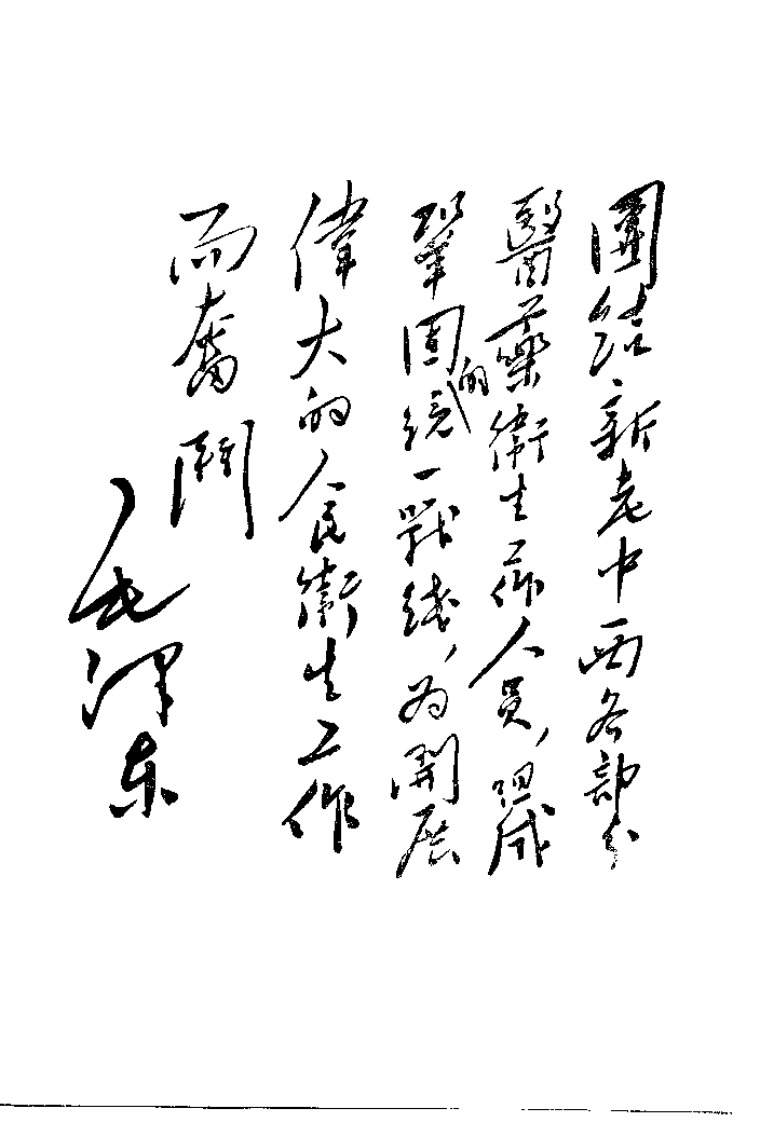 團結新老中西各部分
醫藥衛生工作人员，組成
鞏固的統一戰线，为開展
偉大的人民衛生工作
而奮鬥
毛泽东